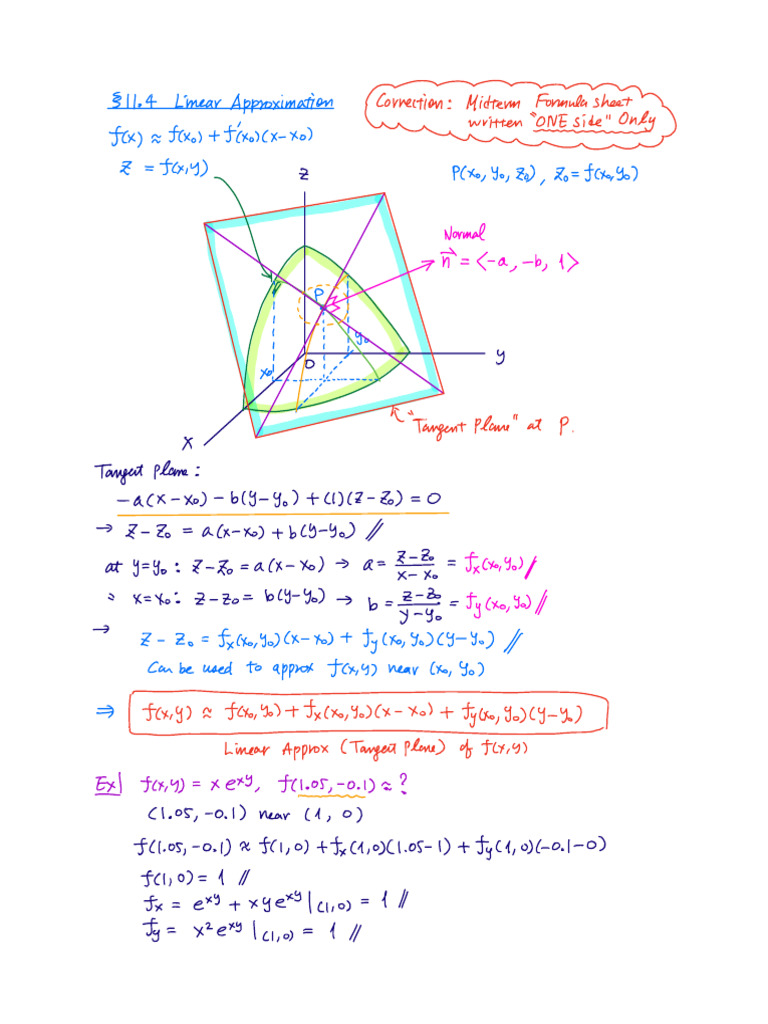 §11.4 Linear Approximation
Correction: Midterm Formula sheet
written "ONE side" Only
f(x) ≈ f(x₀) + f'(x₀)(x-x₀)
z = f(x,y)
P(x₀, y₀, z₀), z₀ = f(x₀,y₀)
z
Normal
n⃗ = <-a, -b, 1>
P
y₀
x₀
O
y
x
"Tangent Plane" at P.
Tangent Plane:
-a(x-x₀) - b(y-y₀) + (1)(z-z₀) = 0
→ z-z₀ = a(x-x₀) + b(y-y₀) //
at y=y₀: z-z₀ = a(x-x₀) → a = (z-z₀)/(x-x₀) = fₓ(x₀,y₀) //
" x=x₀: z-z₀ = b(y-y₀) → b = (z-z₀)/(y-y₀) = f_y(x₀,y₀) //
→ z-z₀ = fₓ(x₀,y₀)(x-x₀) + f_y(x₀,y₀)(y-y₀) //
Can be used to approx f(x,y) near (x₀, y₀)
⇒ f(x,y) ≈ f(x₀,y₀) + fₓ(x₀,y₀)(x-x₀) + f_y(x₀,y₀)(y-y₀)
Linear Approx (Tangent Plane) of f(x,y)
Ex| f(x,y) = x e^{xy}, f(1.05,-0.1) ≈ ?
(1.05, -0.1) near (1, 0)
f(1.05,-0.1) ≈ f(1,0) + fₓ(1,0)(1.05-1) + f_y(1,0)(-0.1-0)
f(1,0) = 1 //
fₓ = e^{xy} + xye^{xy}|(1,0) = 1 //
f_y = x²e^{xy}|(1,0) = 1 //